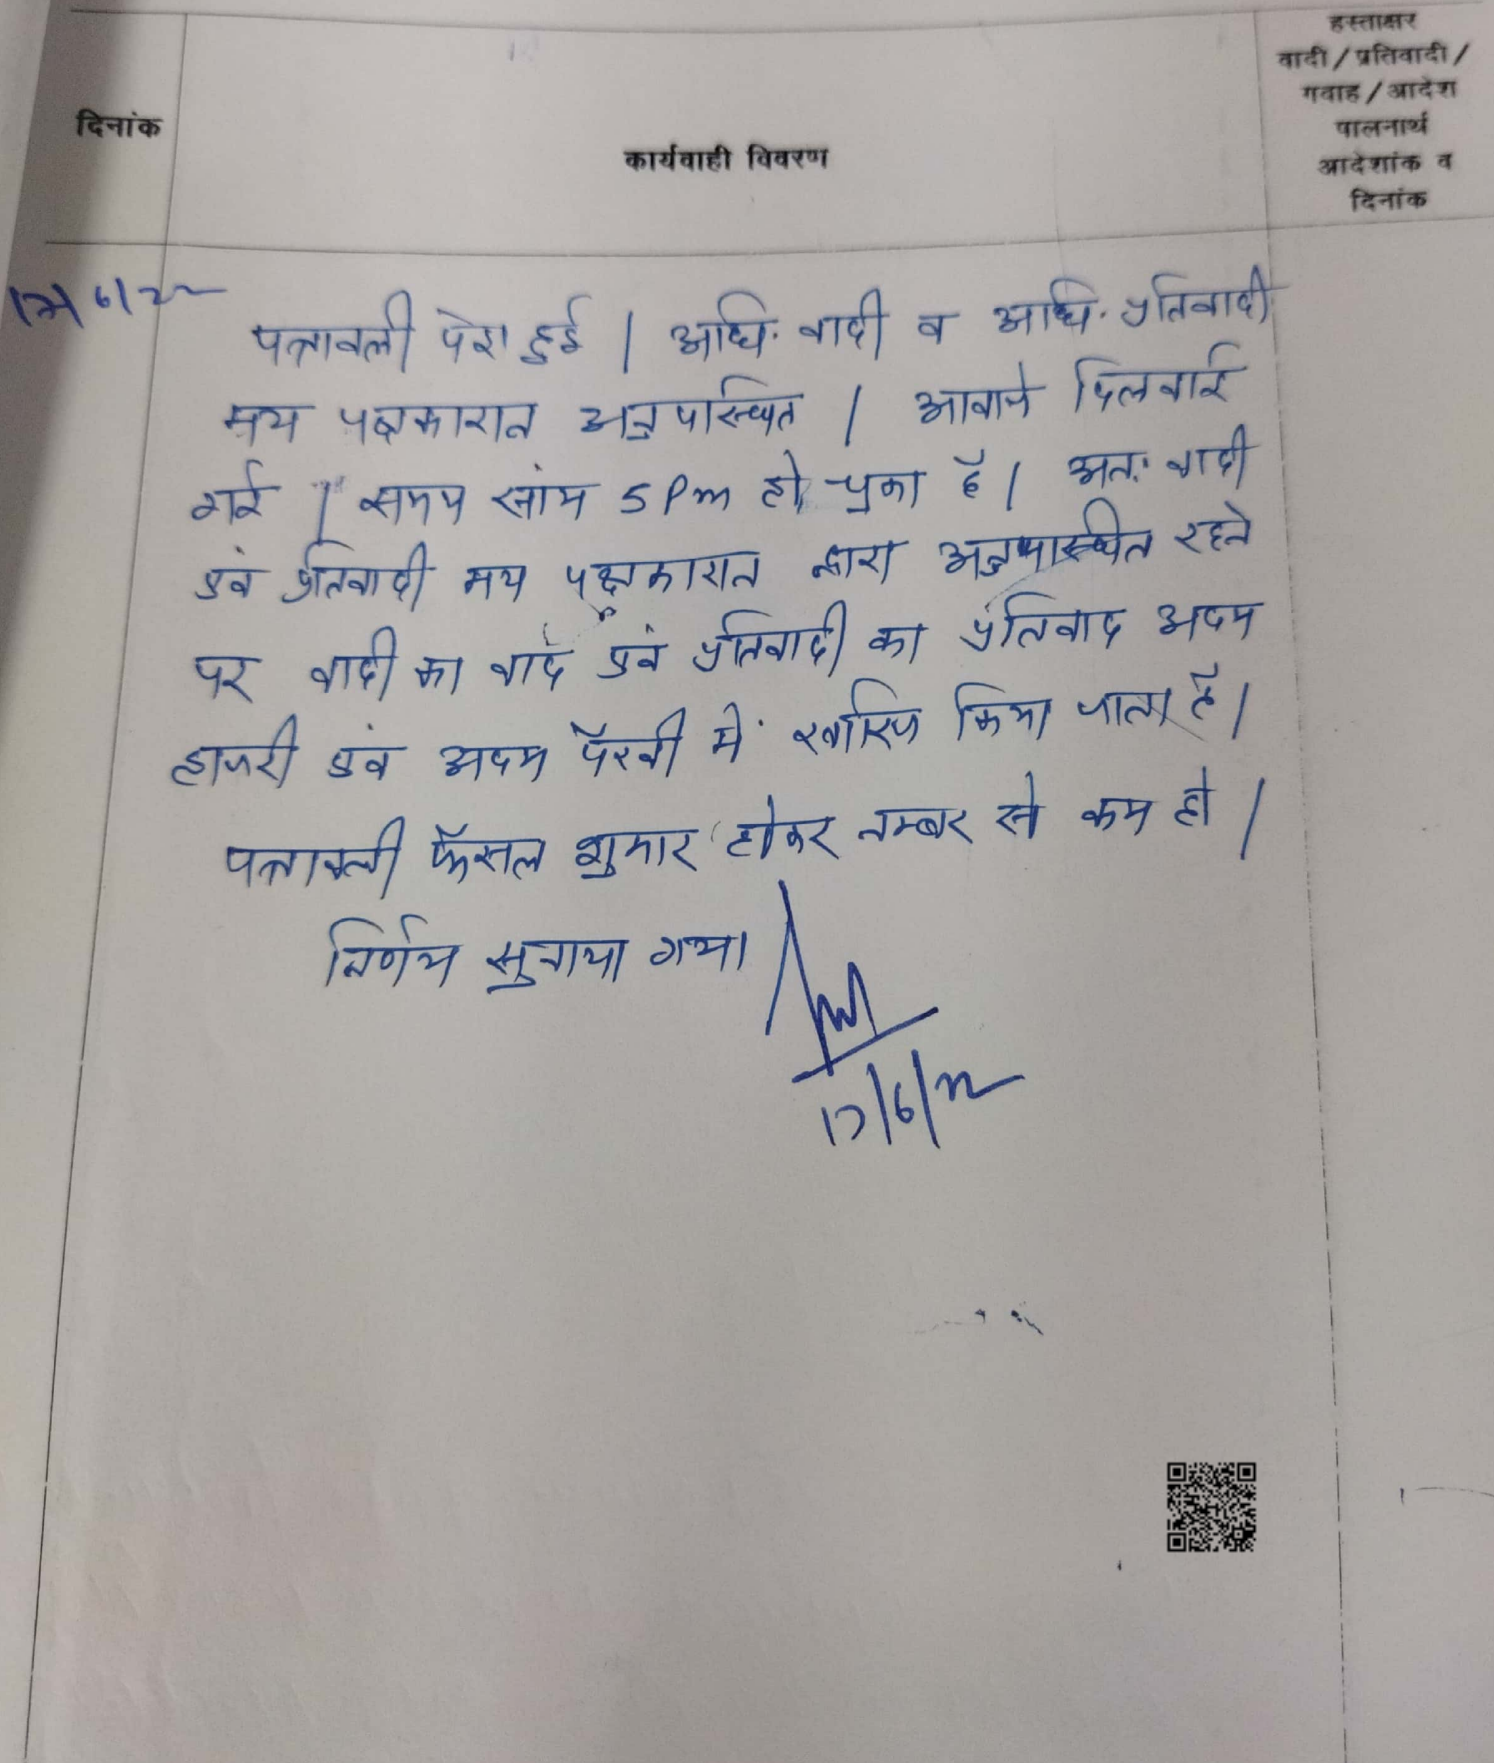 हस्ताक्षर
वादी / प्रतिवादी /
गवाह / आदेश
पालनार्थ
आदेशांक व
दिनांक
दिनांक
कार्यवाही विवरण
17/6/22
पत्रावली पेश हुई | अधि. वादी व अधि. प्रतिवादी
मय पक्षकारान अनुपस्थित | आवाजे दिलवाई
गई | समय सांय 5 Pm हो चुका है | अतः वादी
एवं प्रतिवादी मय पक्षकारान द्वारा अनुपस्थित रहने
पर वादी का वाद एवं प्रतिवादी का प्रतिवाद अदम
हाजरी एवं अदम पैरवी में खारिज किया जाता है |
पत्रावली फैसल शुमार होकर नम्बर से कम हो |
निर्णय सुनाया गया।
17/6/22